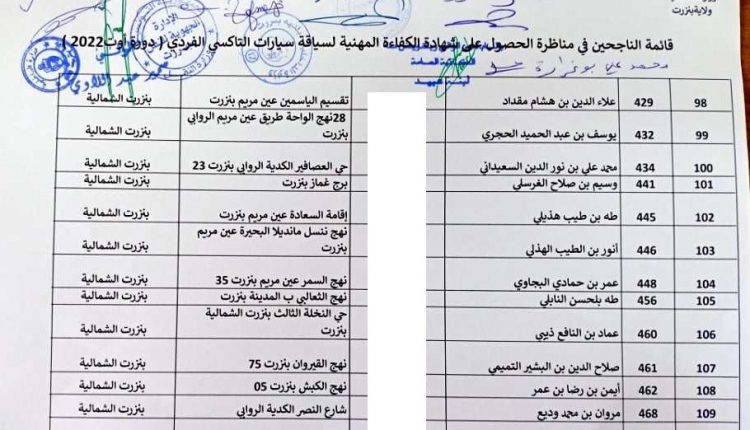 ولاية بنزرت
قائمة الناجحين في مناظرة الحصول على شهادة الكفاءة المهنية لسياقة سيارات التاكسي الفردي ( دورة أوت2022 )
98 429 علاء الدين بن هشام مقداد تقسيم الياسمين عين مريم بنزرت بنزرت الشمالية
99 432 يوسف بن عبد الحميد الحجري 28نهج الواحة طريق عين مريم الروابي
بنزرت بنزرت الشمالية
100 434 محمد علي بن نور الدين السعيداني حي العصافير الكدية الروابي بنزرت 23 بنزرت الشمالية
101 441 وسيم بن صلاح الغرسلي برج غماز بنزرت بنزرت الشمالية
102 445 طه بن طيب هذيلي إقامة السعادة عين مريم بنزرت بنزرت الشمالية
103 446 أنور بن الطيب الهذلي نهج ننسل مانديلا البحيرة عين مريم
بنزرت بنزرت الشمالية
104 448 عمر بن حمادي البجاوي نهج السمر عين مريم بنزرت 35 بنزرت الشمالية
105 456 طه بلحسن النابلي نهج الثعالبي ب المدينة بنزرت بنزرت الشمالية
106 460 عماد بن النافع ذيبي حي النخلة الثالث بنزرت الشمالية
بنزرت بنزرت الشمالية
107 461 صلاح الدين بن البشير التميمي نهج القيروان بنزرت 75 بنزرت الشمالية
108 462 أيمن بن رضا بن عمر نهج الكبش بنزرت 05 بنزرت الشمالية
109 468 مروان بن محمد وديع شارع النصر الكدية الروابي بنزرت الشمالية